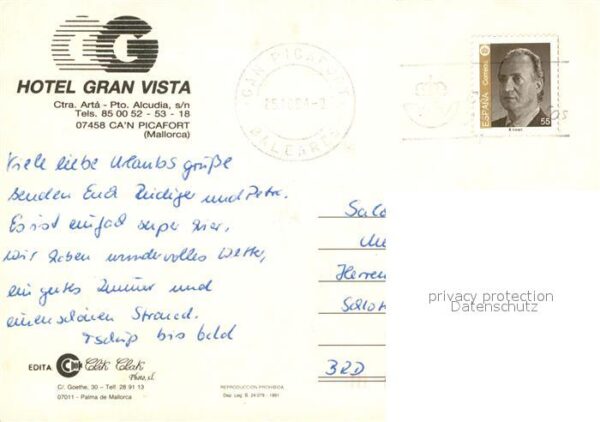 HOTEL GRAN VISTA
Ctra. Artá - Pto. Alcudia, s/n
Tels. 85 00 52 - 53 - 18
07458 CA'N PICAFORT
(Mallorca)
CAN PICAFORT
BALEARES
Correos
ESPAÑA
55
Viele liebe Urlaubsgrüße
senden Euch Rüdiger und Petra.
Es ist einfach super hier,
wir haben wundervolles Wetter,
ein gutes Zimmer und
einen schönen Strand.
Tschüß bis bald
Herren
BRD
privacy protection
Datenschutz
EDITA Clik Clak
Photo, s.l.
C/. Goethe, 30 - Telf. 28 91 13
07011 - Palma de Mallorca
REPRODUCCION PROHIBIDA
Dep. Leg. B. 24.079 - 1991